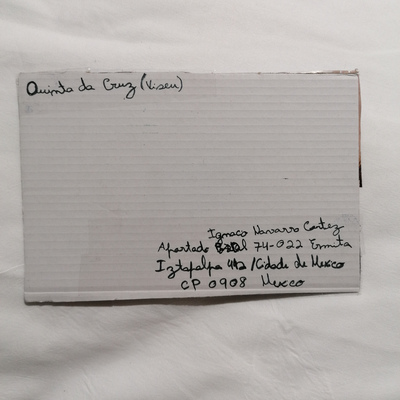 Quinta da Cruz (Viseu)
Ignaco Navarro Cortez
Apartado 74-022 Ermita
Iztapalpa /Cidade de Mexico
CP 0908 Mexco